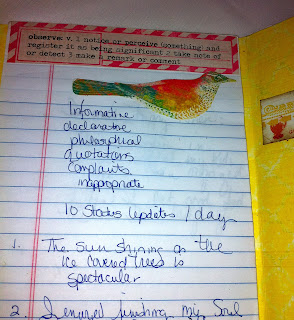 observe: v. 1 notice or perceive (something) and
register it as being significant 2 take note of
or detect 3 make a remark or comment
Informative
declarative
philosophical
quotations
complaints
inappropriate
10 Status Updates / day
1. The sun shining on the
ice covered trees is
spectacular
2. I enjoyed finishing my Soul